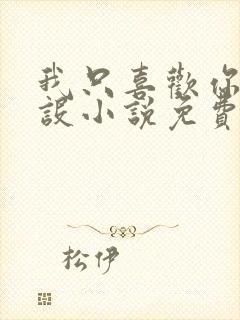 我只喜歡你
設小說免費
松伊